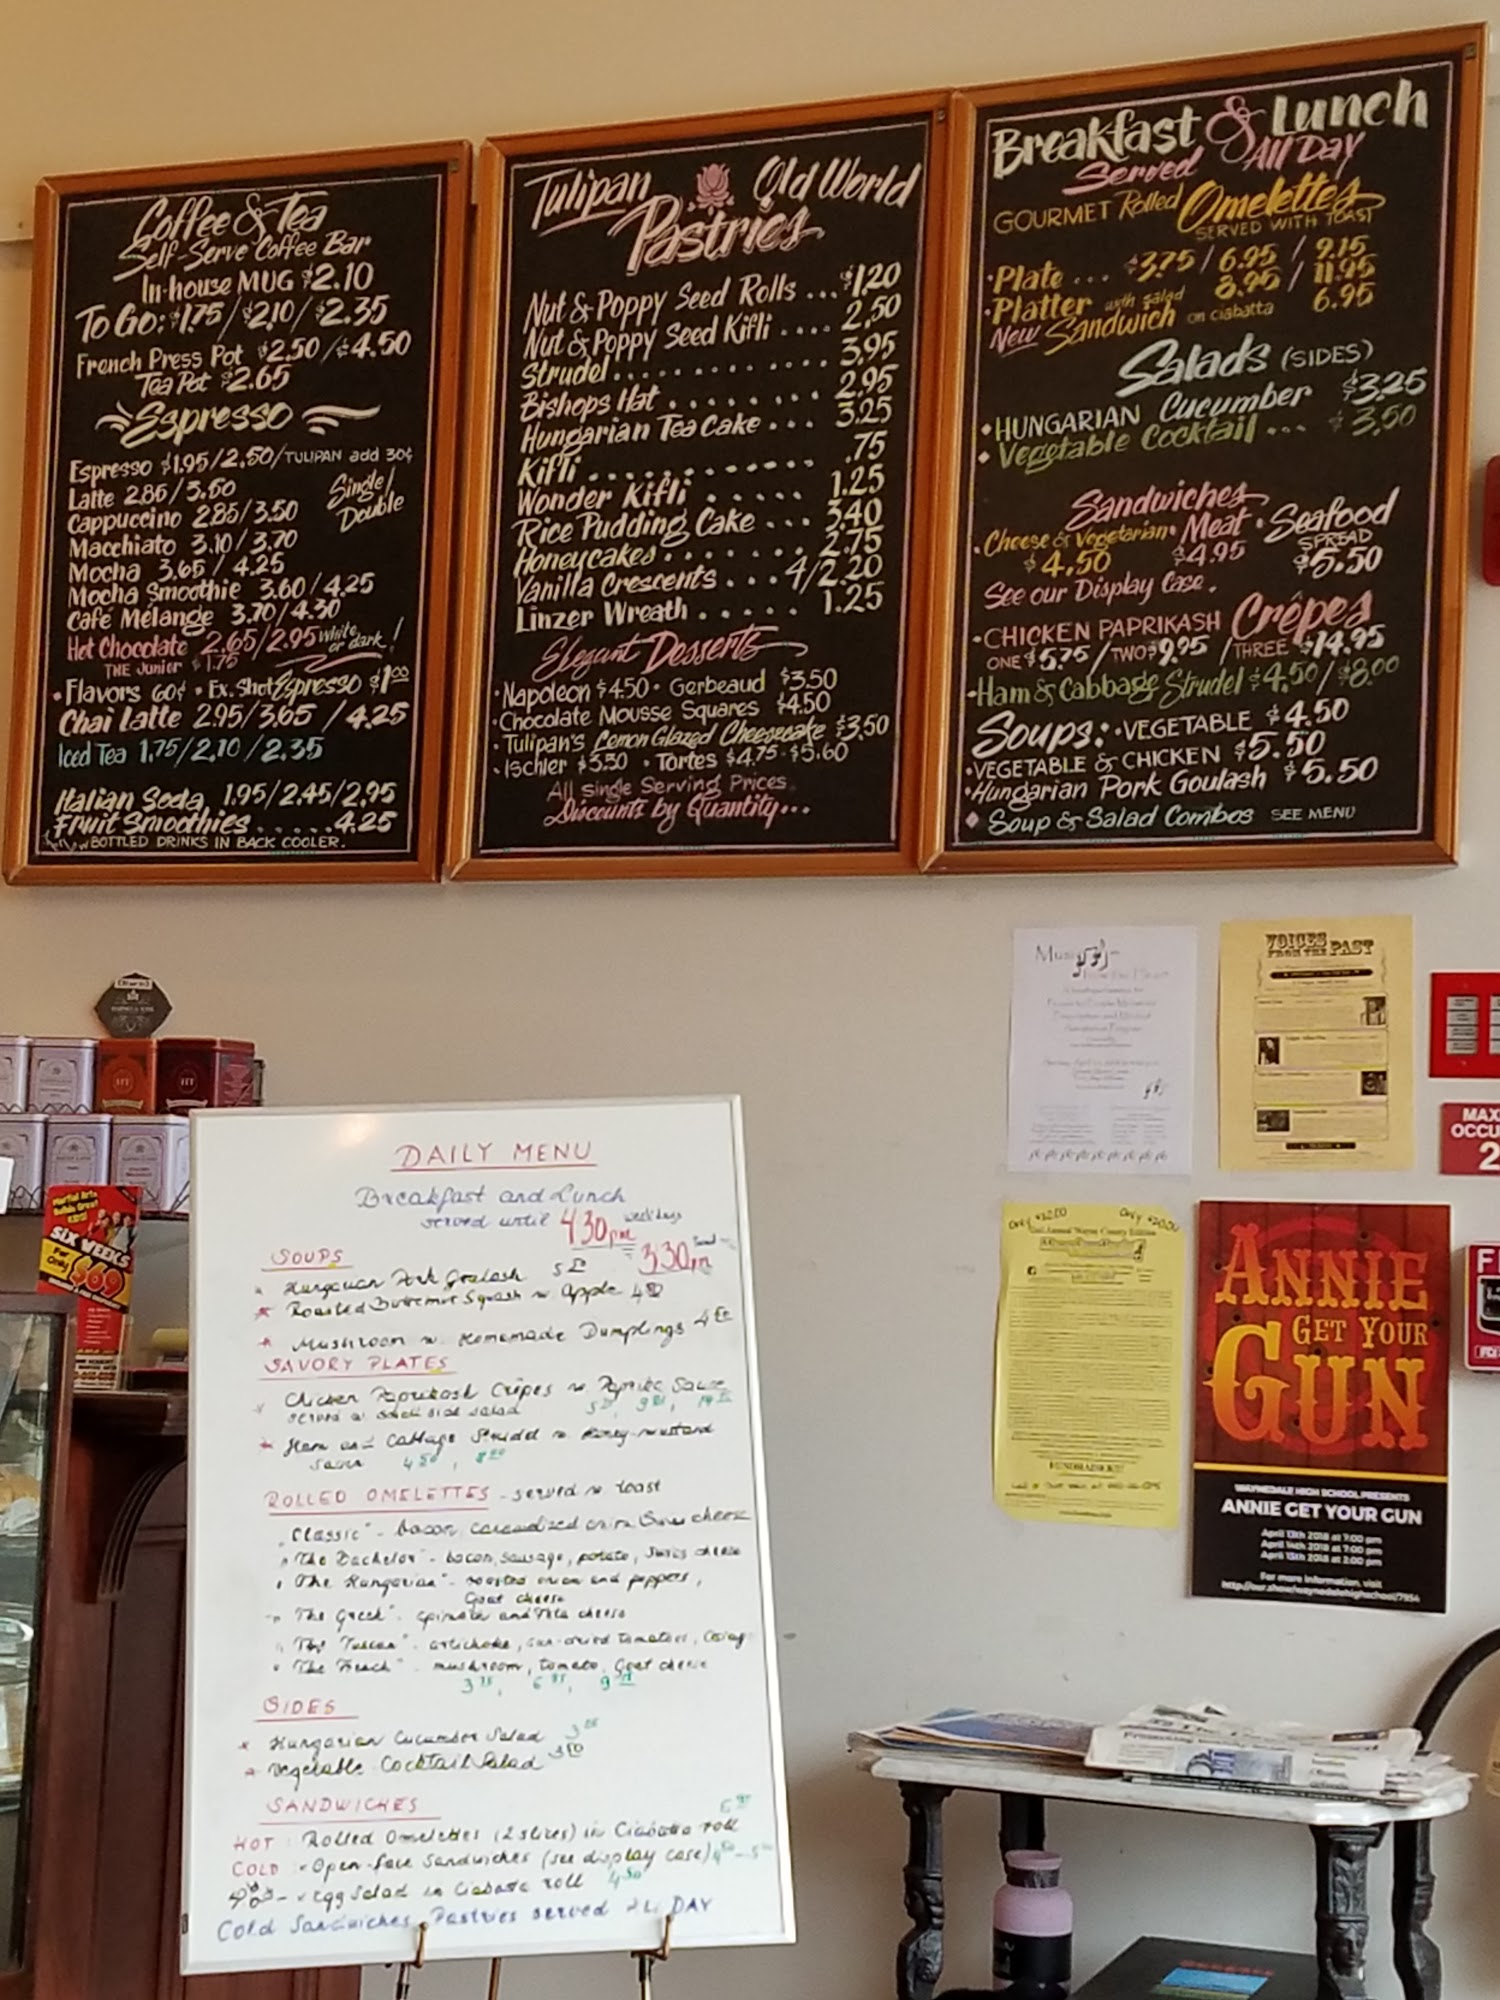 Coffee & Tea
Self-Serve Coffee Bar
In-house MUG $2.10
To Go: $1.75/$2.10/$2.35
French Press Pot $2.50/$4.50
Tea Pot $2.65
Espresso
Espresso $1.95/2.50/TULIPAN add 30¢
Latte 2.85/3.50
Single/
Double
Cappuccino 2.85/3.50
Macchiato 3.10/3.70
Mocha 3.65/4.25
Mocha Smoothie 3.60/4.25
Café Mélange 3.70/4.30
Hot Chocolate 2.65/2.95 white or dark!
THE Junior $1.75
• Flavors 60¢ • Ex. Shot Espresso $1.00
Chai Latte 2.95/3.65/4.25
Iced Tea 1.75/2.10/2.35
Italian Soda 1.95/2.45/2.95
Fruit Smoothies......4.25
BOTTLED DRINKS IN BACK COOLER.
Tulipan Old World
Pastries
Nut & Poppy Seed Rolls ... $1.20
Nut & Poppy Seed Kifli .... 2.50
Strudel............. 3.95
Bishops Hat ........ 2.95
Hungarian Tea Cake ... 3.25
Kifli............. .75
Wonder Kifli ...... 1.25
Rice Pudding Cake ... 3.40
Honeycakes........ 2.75
Vanilla Crescents ...4/2.20
Linzer Wreath ..... 1.25
Elegant Desserts
• Napoleon $4.50 • Gerbeaud $3.50
• Chocolate Mousse Squares $4.50
• Tulipan's Lemon Glazed Cheesecake $3.50
• Ischler $3.50 • Tortes $4.75-$5.60
All Single Serving Prices
Discounts by Quantity...
Breakfast & Lunch
Served All Day
GOURMET Rolled Omelettes
SERVED WITH TOAST
• Plate ... $3.75/6.95/9.15
• Platter with salad 8.95/11.95
New Sandwich on ciabatta 6.95
Salads (SIDES)
• HUNGARIAN Cucumber $3.25
• Vegetable Cocktail ... $3.50
Sandwiches
• Cheese or Vegetarian • Meat • Seafood
SPREAD
$4.50 $4.95 $5.50
See our Display Case.
• CHICKEN PAPRIKASH Crêpes
ONE $5.75/TWO $9.95/THREE $14.95
• Ham & Cabbage Strudel $4.50/$8.00
Soups: • VEGETABLE $4.50
• VEGETABLE & CHICKEN $5.50
• Hungarian Pork Goulash $5.50
• Soup & Salad Combos SEE MENU
Music from the Heart
VOICES
FROM THE PAST
DAILY MENU
Breakfast and Lunch
served until 430pm weekdays
330pm
SOUPS
Hungarian Pork Goulash
Roasted Butternut Squash w Apple
Mushroom w. Homemade Dumplings
SAVORY PLATES
Chicken Paprikash Crêpes w Paprika Sauce
served w. small side salad
Ham and Cabbage Strudel w Honey-mustard
sauce 4 50, 8 00
ROLLED OMELETTES - served w toast
"Classic" - bacon caramelized onion Swiss cheese
"The Bachelor" - bacon, sausage, potato, Swiss cheese
"The Hungarian" - roasted onion and peppers,
Goat cheese
"The Greek" - spinach and Feta cheese
"The Tuscan" - artichoke, sun-dried tomatoes,
"The French" - mushroom, tomato, Goat cheese
SIDES
Hungarian Cucumber Salad 3 25
Vegetable Cocktail Salad 3 50
SANDWICHES
HOT: Rolled Omelettes (2 slices) in Ciabatta roll
COLD: Open-face sandwiches (see display case)
Egg Salad in Ciabatta roll 4 50
Cold Sandwiches, Pastries served ALL DAY
SIX WEEKS
For Only $69
MAX
OCCU
2
ANNIE
GET YOUR
GUN
WAYNEDALE HIGH SCHOOL PRESENTS
ANNIE GET YOUR GUN
April 13th 2018 at 7:00 pm
April 14th 2018 at 7:00 pm
April 15th 2018 at 2:00 pm
For more information, visit
http://our.show/waynedalehighschool/7954
FUNDRAISER!